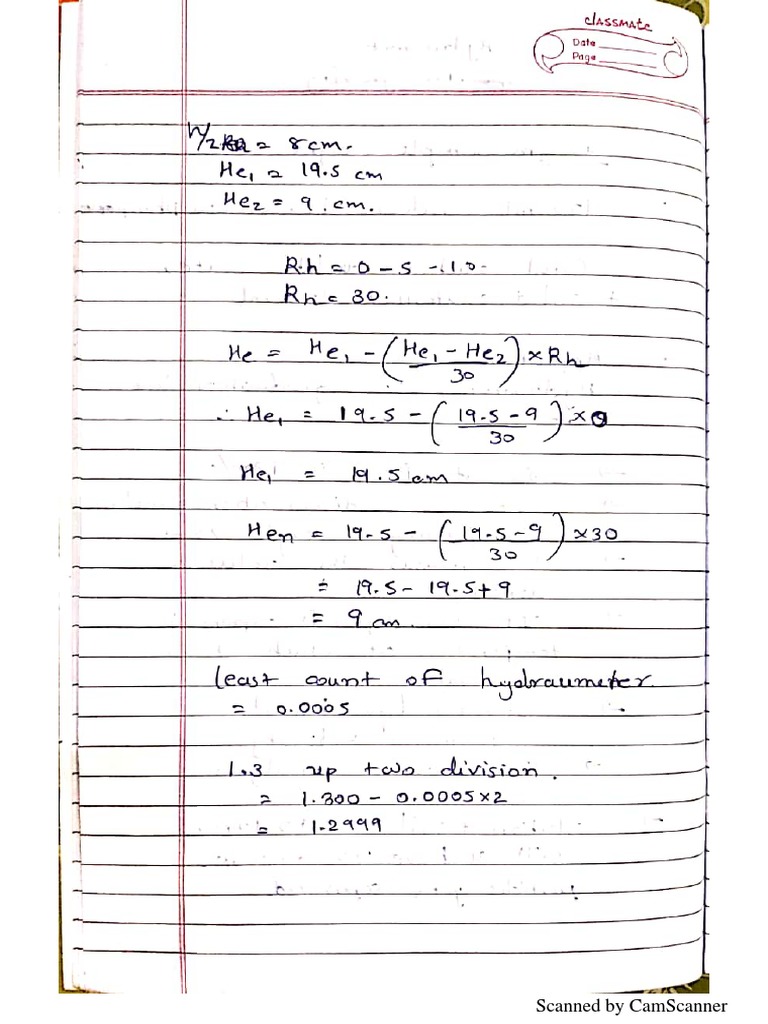 classmate
Date
Page
h/2 = 8 cm.
He1 = 19.5 cm
He2 = 9 cm.
Rh = 0 - 5 - 10 -
Rh = 30.
He = He1 - (He1 - He2 / 30) × Rh
∴ He1 = 19.5 - (19.5 - 9 / 30) × 0
He1 = 19.5 cm
Hen = 19.5 - (19.5 - 9 / 30) × 30
= 19.5 - 19.5 + 9
= 9 cm.
least count of hydraumeter
= 0.0005
1.3 up two division.
= 1.300 - 0.0005 × 2
= 1.2999
Scanned by CamScanner